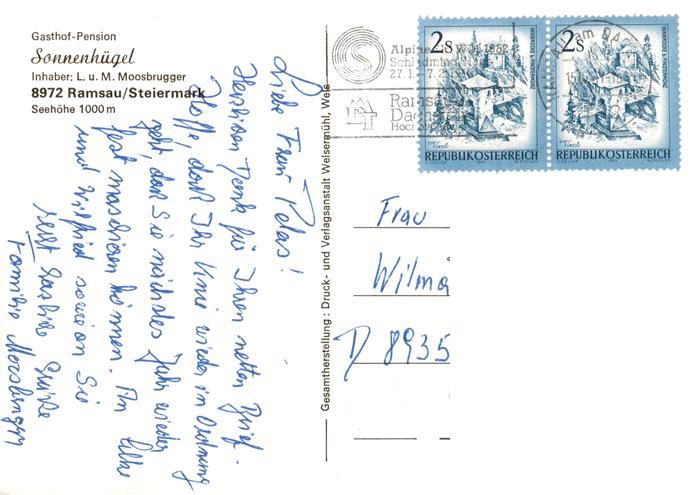 Gasthof-Pension
Sonnenhügel
Inhaber: L. u. M. Moosbrugger
8972 Ramsau/Steiermark
Seehöhe 1000 m
Liebe Frau Pelas!
Herzlichen Dank für Ihren netten Brief.
Hoffe, daß Ihr Knie wieder in Ordnung
geht, daß Sie nächstes Jahr wieder
fest maschieren können. An
und Wilfried sowie an Sie
recht herzliche Grüße
Familie Moosbrugger
Gesamtherstellung: Druck- und Verlagsanstalt Welsermühl, Wels
Alpine WM 1982
Schladming
27.1.-7.2.
Ramsau
Dachstein
2S
REPUBLIK ÖSTERREICH
2S
REPUBLIK ÖSTERREICH
Frau
Wilma
D 8935